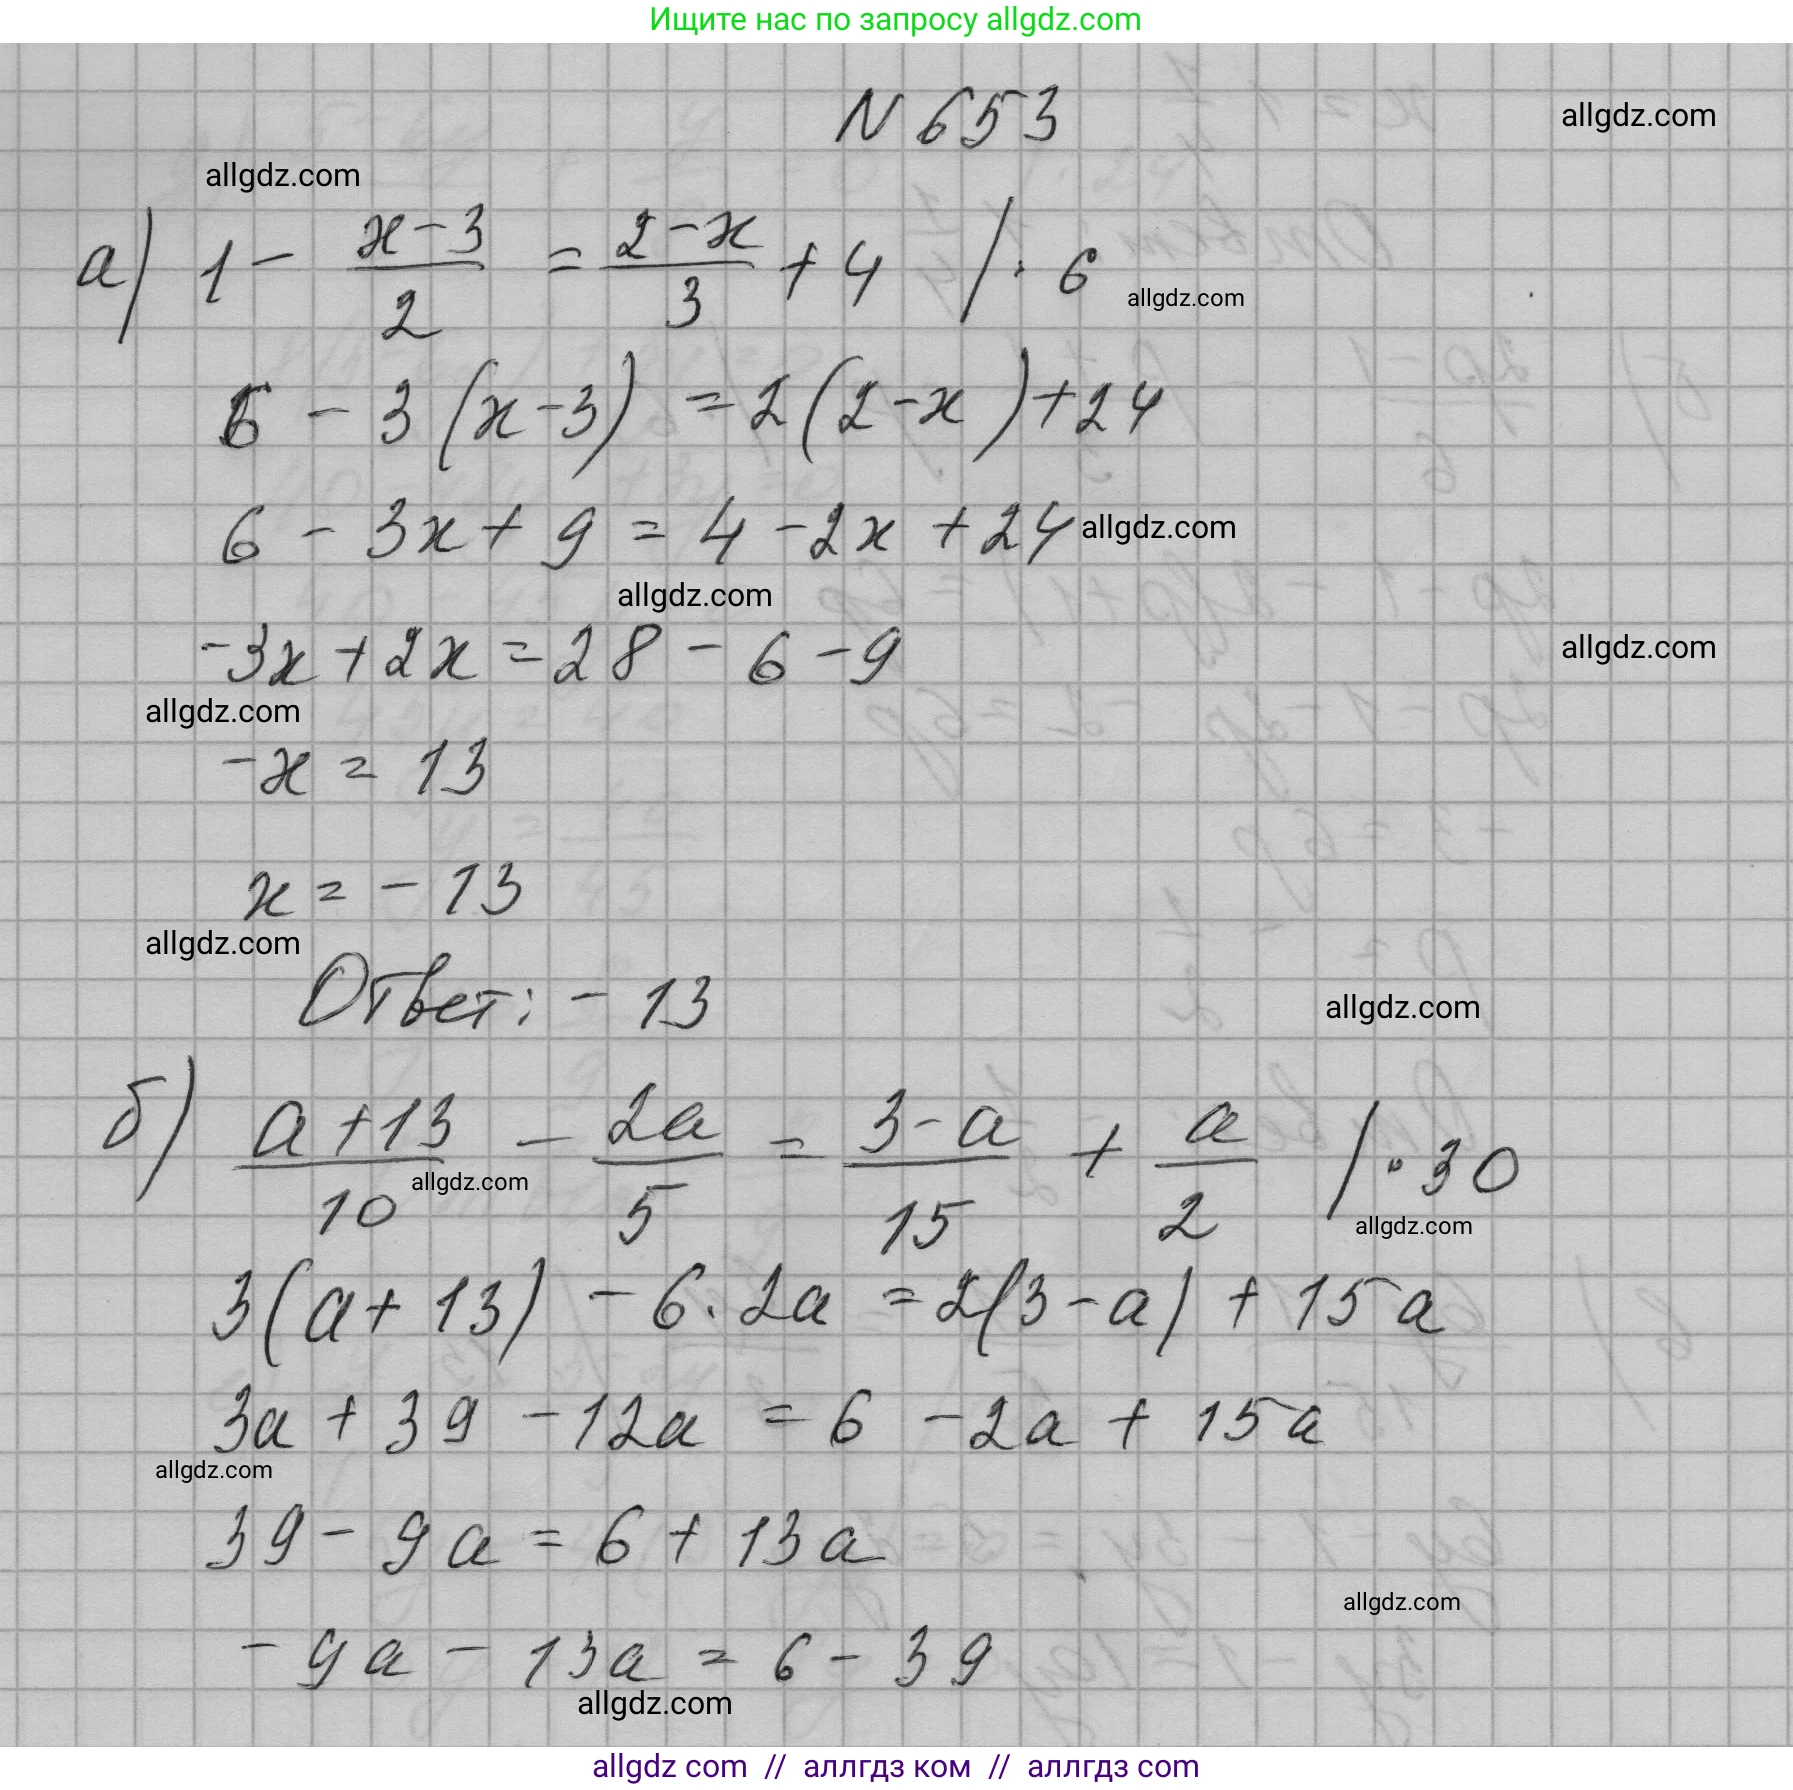 Ищите нас по запросу allgdz.com
N 653
allgdz.com
allgdz.com
а) 1 - (x-3)/2 = (2-x)/3 + 4 / · 6
allgdz.com
6 - 3(x-3) = 2(2-x)+24
6 - 3x + 9 = 4 - 2x + 24
allgdz.com
allgdz.com
-3x + 2x = 28 - 6 - 9
allgdz.com
allgdz.com
-x = 13
x = - 13
allgdz.com
Ответ: - 13
allgdz.com
б) (a+13)/10 - 2a/5 = (3-a)/15 + a/2 / · 30
allgdz.com
allgdz.com
3(a+13) - 6·2a = 2(3-a) + 15a
3a + 39 - 12a = 6 - 2a + 15a
allgdz.com
39 - 9a = 6 + 13a
allgdz.com
- 9a - 13a = 6 - 39
allgdz.com
allgdz com // аллгдз ком // аллгдз com